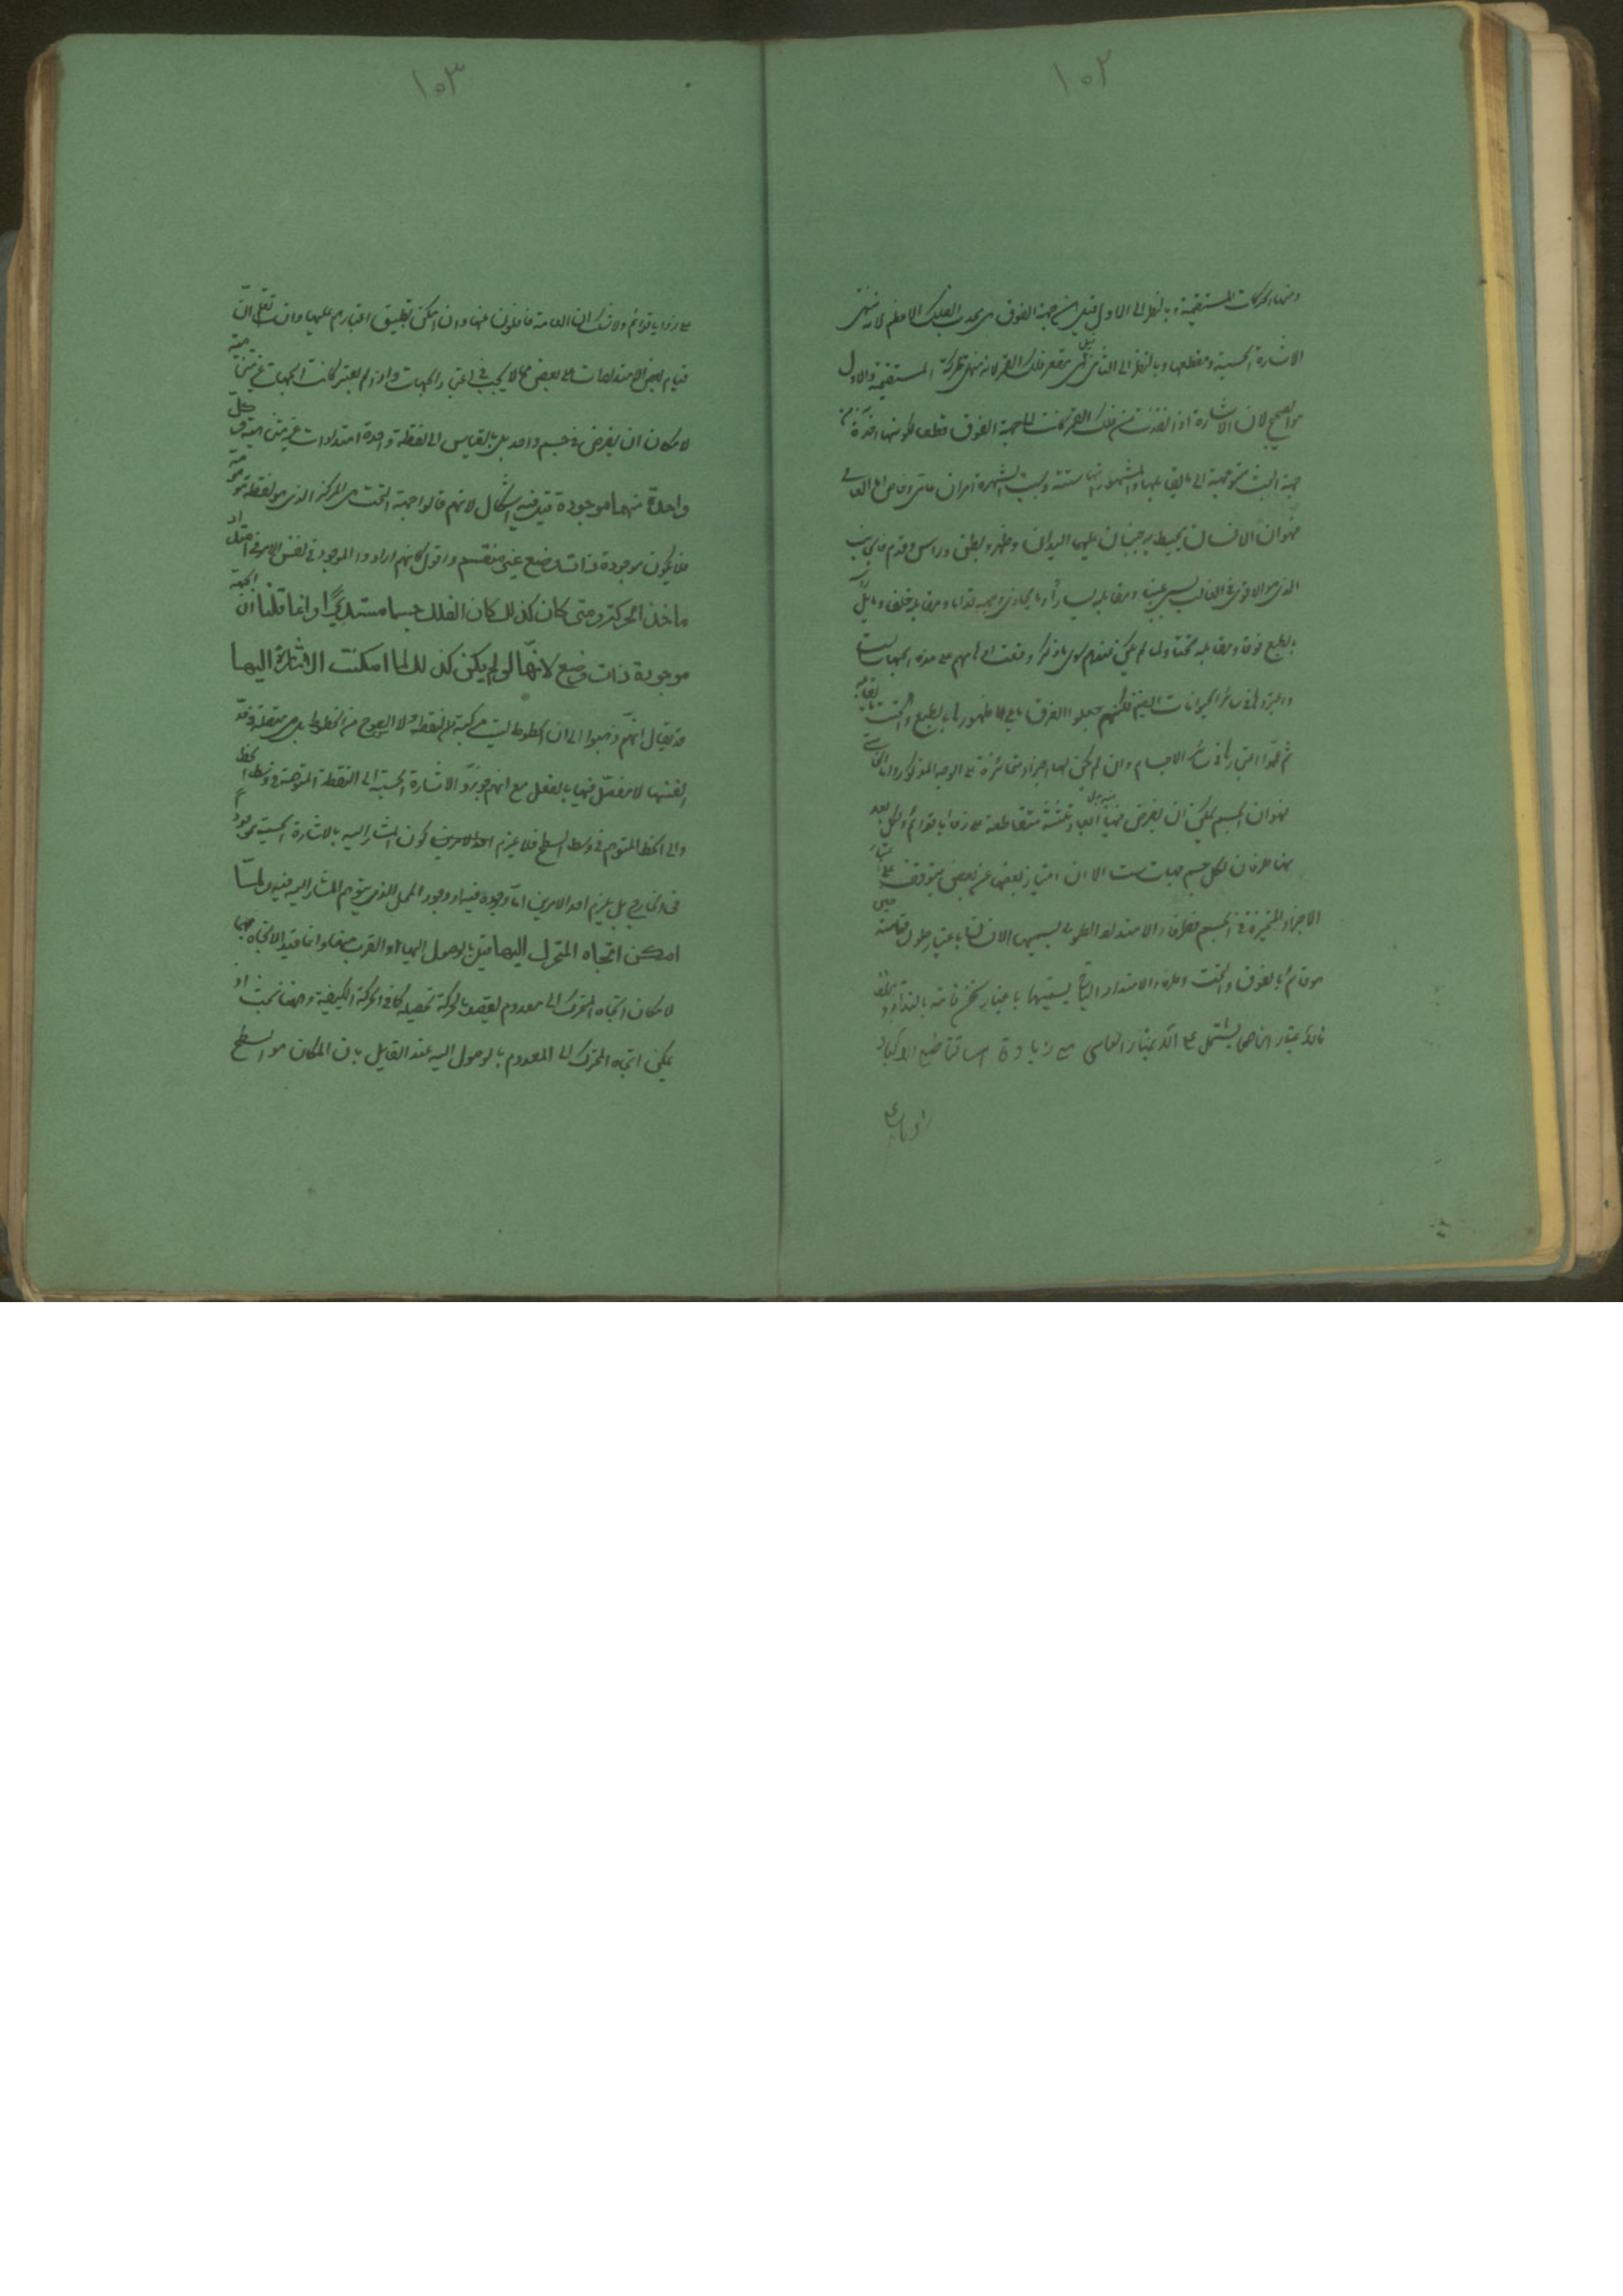 ١٠٢
ومنها الحركات المستقيمة وبالنظر الى الاول قيل ان جهة الفوق هى محدب الفلك الاعظم لانه منتهى
الاشارة الحسية ومقطعها وبالنظر الى الثانى قيل هى مقعر فلك القمر لانه منتهى الحركة المستقيمة والاول
هو الصحيح لان الاشارة اذا نفذت من فلك القمر كانت الى جهة الفوق قطعا لكونها اخذة من
جهة التحت متوجهة الى ما يقابلها والمشهور انها ستة وسبب الشهرة امران عامى وخاصى اما العامى
فهو ان الانسان يحيط به جنبان عليهما اليدان وظهر وبطن وراس وقدم فالجانب
الذى هو الاقوى فى الغالب يسمى يمينا ومقابله يسارا وما يحاذى وجهه قداما ومقابله خلفا وما يلى راسه
بالطبع فوقا ومقابله تحتا ولما لم يكن عندهم سوى ما ذكر وقعت اوهامهم على هذه الجهات الست
واعتبروها فى سائر الحيوانات ايضا لكنهم جعلوا الفوق ما يلى ظهورها بالطبع والتحت ما يقابله
ثم عمموا اعتبارها فى سائر الاجسام وان لم يكن لها اجزاء متمايزة على الوجه المذكور واما الخاصى
فهو ان الجسم يمكن ان يفرض فيه ابعاد ثلثة متقاطعة على زوايا قوائم ولكل بعد
منها طرفان فلكل جسم جهات ست الا ان امتياز بعضها عن بعض يتوقف على اعتبار
الاجزاء المتميزة فى الجسم فطرفا الامتداد الطولى يسميهما الانسان باعتبار طول قامته حين
هو قائم بالفوق والتحت وطرفا الامتداد يسميهما باعتبار ثخن قامته بالقدام والخلف
فالاعتبار الخاصى يشتمل على الاعتبار العامى مع زيادة هى تقاطع الابعاد
١٠٣
على زوايا قوائم ولا شك ان العامة غافلون عنها وان امكن تطبيق اعتبارهم عليها وانت تعلم ان
قيام بعض الامتدادات على بعض مما لا يجب فى اعتبار الجهات واذا لم يعتبر كانت الجهات غير متناهية
لامكان ان يفرض فى جسم واحد بل بالقياس الى نقطة واحدة امتدادات غير متناهية وكل
واحدة منهما موجودة قيل فيه اشكال لانهم قالوا جهة التحت هى المركز الذى هو نقطة موهومة
فلا يكون موجودة ذات وضع غير منقسم واقول كانهم ارادوا الموجود فى نفس الامر فى امتداد
ماخذ الحركة ومتى كان كذلك كان الفلك جسما مستديرا وانما قلنا ان الجهة
موجودة ذات وضع لانها لو لم يكن كذلك لما امكنت الاشارة اليها
قد يقال انهم ذهبوا الى ان الخطوط ليست مركبة من النقط ولا السطوح من الخطوط بل هى متصلة فى حد
انفسها لا مفصل فيها بالفعل مع انهم جوزوا الاشارة الحسية الى النقطة المتوهمة فى وسط الخط
والى الخط المتوهم فى وسط السطح فلا يلزم كون المشار اليه بالاشارة الحسية موجودا
فى الخارج بل يلزم احد الامرين اما وجوده فيه او وجود المحل الذى يتوهم المشار اليه فيه ولما
امكن اتجاه المتحرك اليها قيل بالوصول اليها او القرب منها وانما قيد الاتجاه بهما
لامكان اتجاه المتحرك الى معدوم يقصد بالحركة تحصيله كما فى الحركة الكيفية وههنا بحث اذ
يمكن اتجاه المتحرك الى المعدوم بالوصول اليه عند القايل بان المكان هو السطح